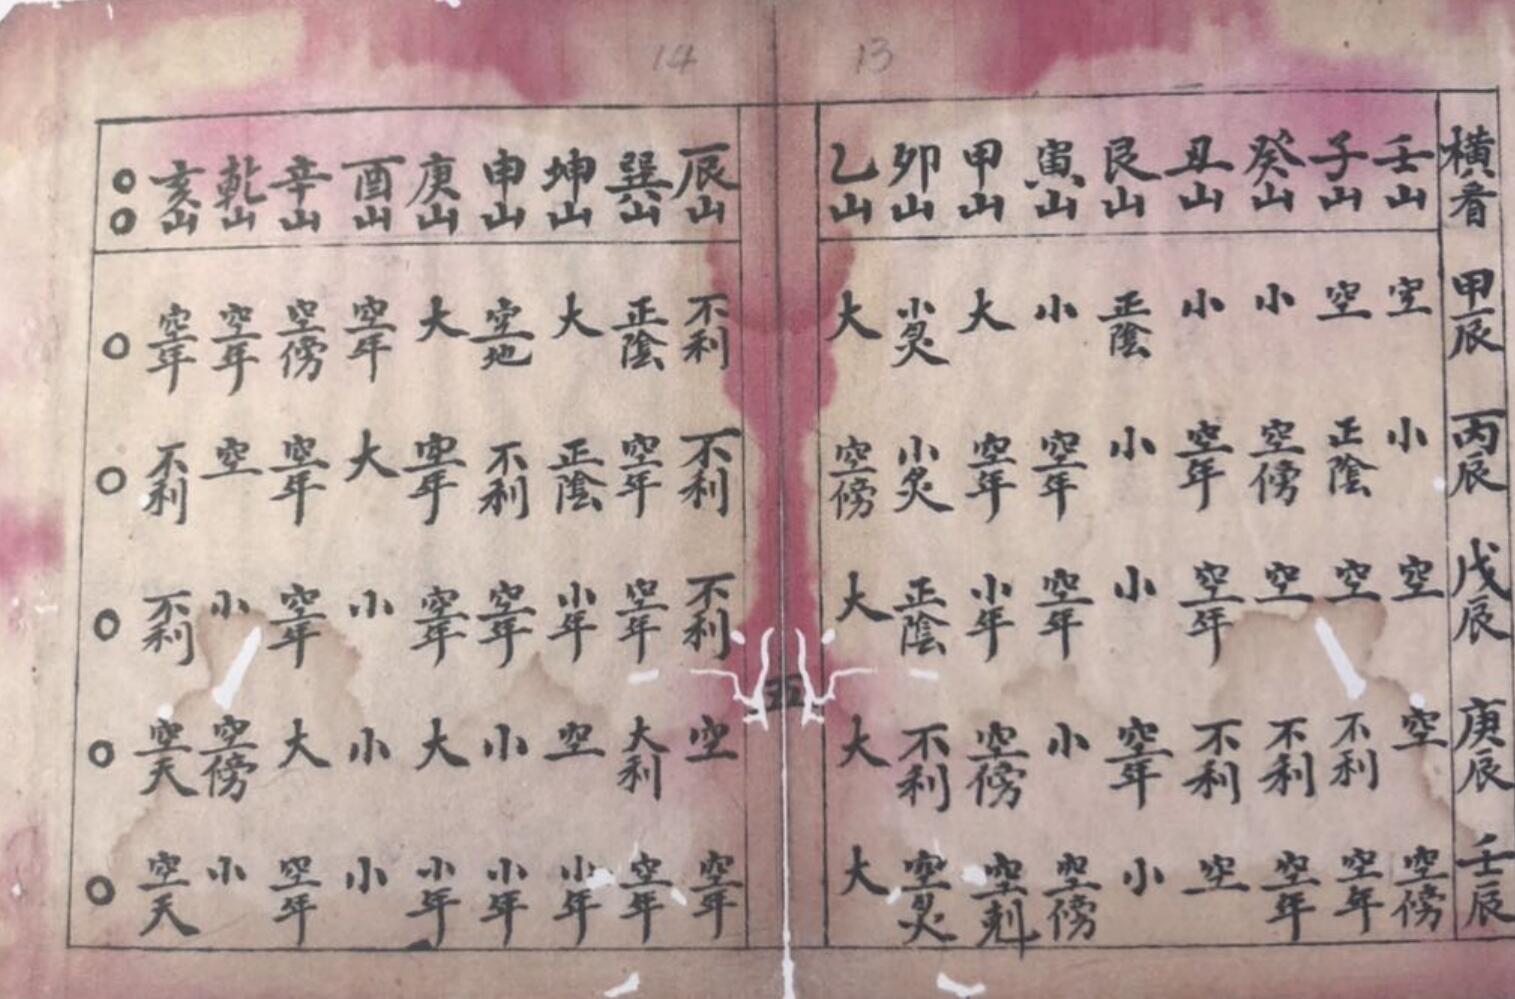 14 13
橫看 壬山 子山 癸山 丑山 艮山 寅山 甲山 卯山 乙山 辰山 巽山 坤山 申山 庚山 酉山 辛山 乾山 亥山 ○○
甲辰 空 空 小 小 正陰 小 大 小炙 大 不利 正陰 大 空地 大 空年 空傍 空年 空年 ○
丙辰 小 正陰 空傍 空年 小 空年 空年 小炙 空傍 不利 空年 正陰 不利 空年 大 空年 空 不利 ○
戊辰 空 空 空 空年 小 空年 小年 正陰 大 不利 空年 小年 空年 空年 小 空年 小 不利 ○
五
庚辰 空 不利 不利 不利 空年 小 空傍 不利 大 空 大利 空 小 大 小 大 空傍 空天 ○
壬辰 空傍 空年 空年 空 小 空傍 空剋 空炙 大 空年 空年 小年 小年 小年 小 空年 小 空天 ○